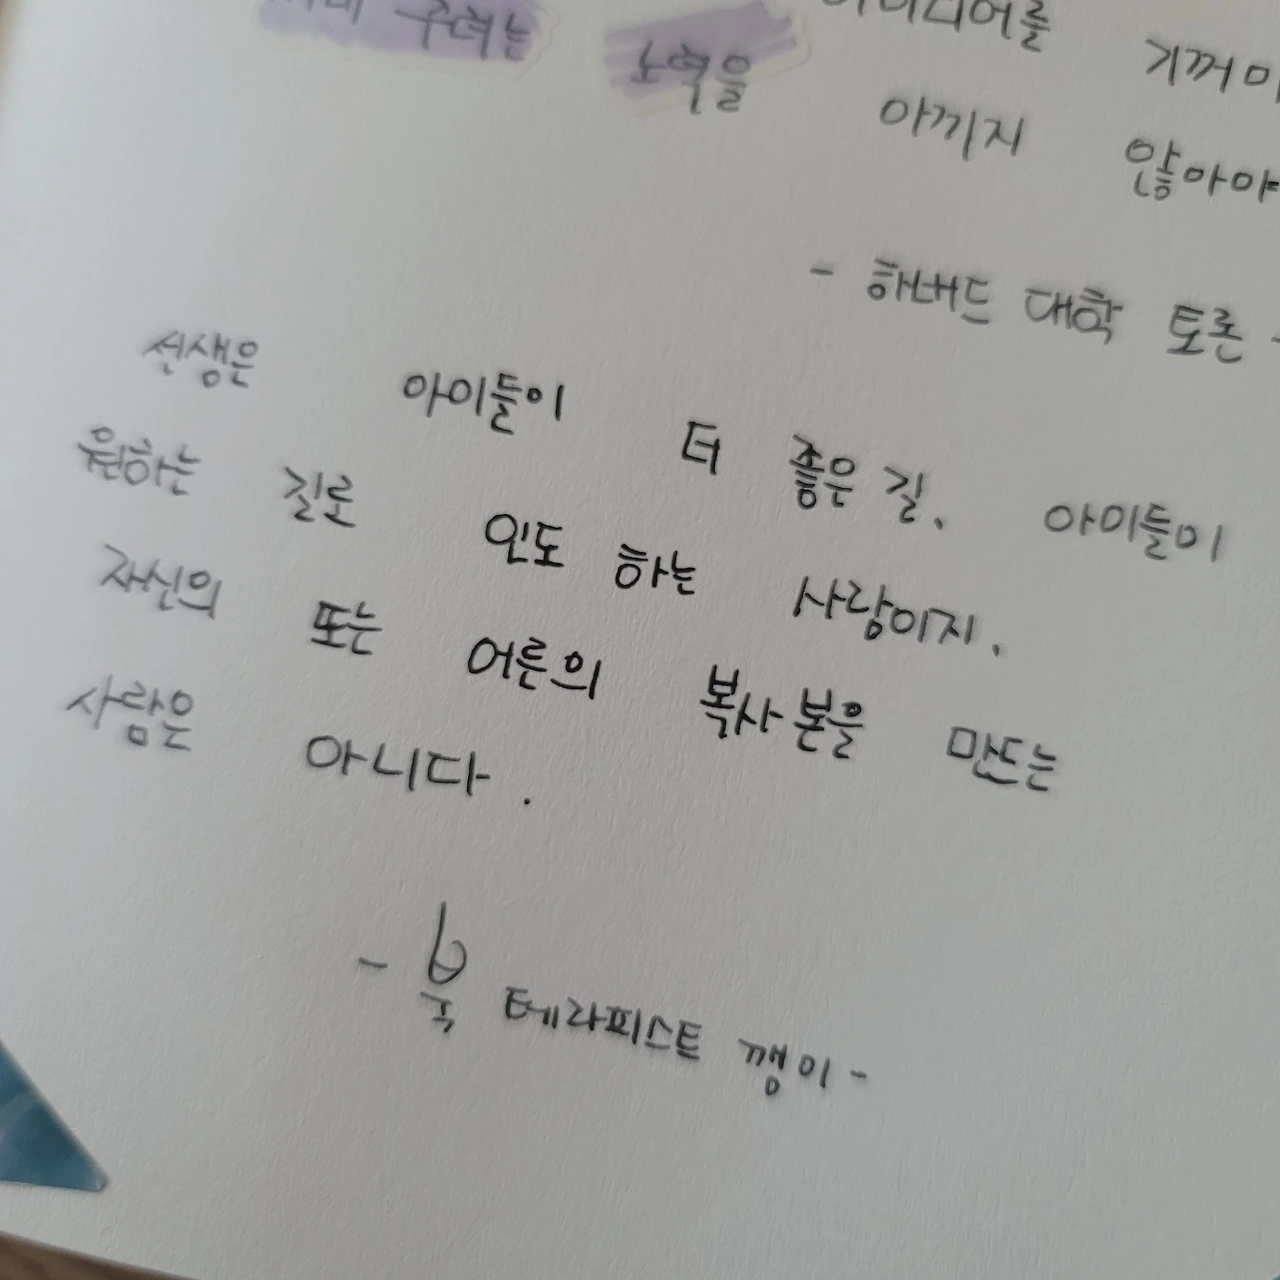 노력을 아끼지 않아야
- 하버드 대학 토론 -
선생은 아이들이 더 좋은 길, 아이들이
원하는 길로 인도 하는 사람이지,
자신의 또는 어른의 복사본을 만드는
사람은 아니다.
- 테라피스트 깽이 -